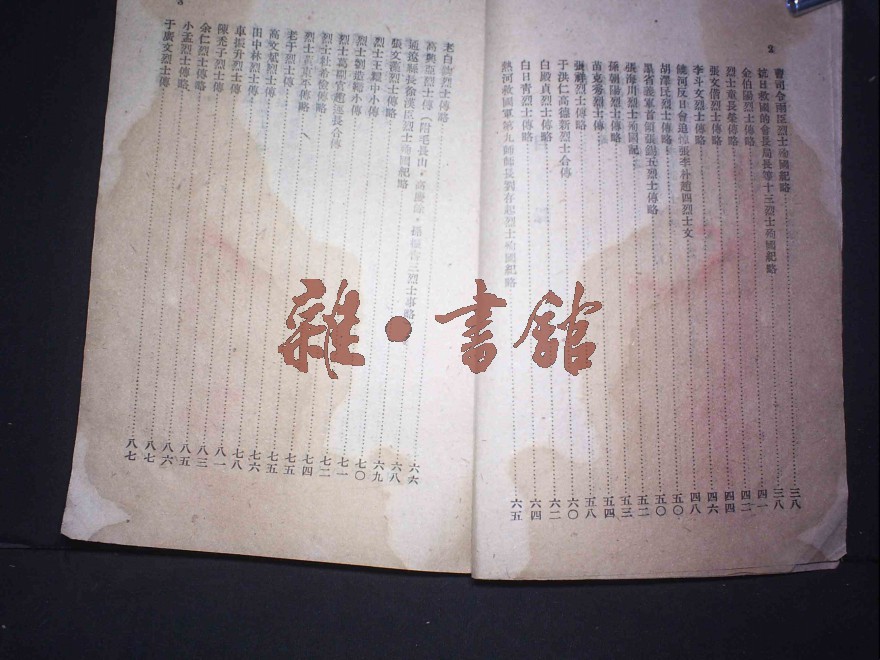 2
曹司令國臣烈士殉國紀略 三八
抗日救國的會長局長等十三烈士殉國紀略 三八
金伯陽烈士傳略 四一
烈士童長榮傳略 四二
張文偕烈士傳略 四四
李斗文烈士傳略 四六
饒河反日會追悼張李朴趙四烈士文 四八
胡澤民烈士傳略 五〇
黑省義軍首領張錫五烈士傳略 五〇
張海川烈士殉國記 五二
孫朝陽烈士傳略 五三
苗克秀烈士傳 五四
張祥烈士傳略 五八
于洪仁高德新烈士合傳 六〇
白殿貞烈士傳略 六二
白日青烈士傳略 六四
熱河救國軍第九師師長劉存起烈士殉國紀略 六五
3
老白 烈士傳略 六六
高興亞烈士傳(附毛長山,高慶 , 三烈士事略) 六六
通遼縣長徐漢臣烈士殉國紀略 六八
張文 烈士傳略 六九
烈士王耀中小傳 七〇
烈士劉 小傳 七一
烈士葛 趙 長合傳 七二
烈士杜希 傳略 七四
烈士袁 傳略 七五
老于烈士小傳 七五
高文 烈士傳 七六
田中林烈士傳略 七八
車振升烈士傳 八一
陳禿子烈士傳 八三
余仁烈士傳略 八五
小孟烈士傳略 八六
于廣文烈士傳 八七
八七
雜·書館